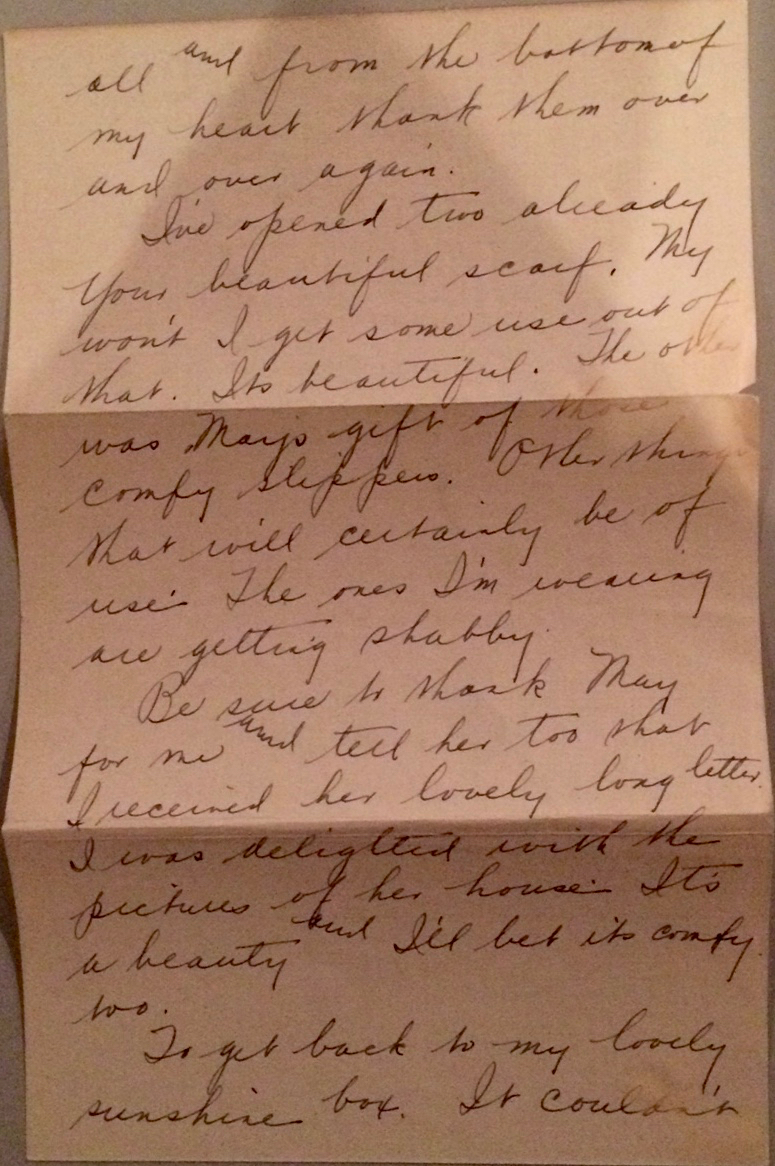 all and from the bottom of
my heart thank them over
and over again.
I've opened two already
Your beautiful scarf. My
won't I get some use out of
that. Its beautiful. The other
was Mays gift of those
comfy slippers. Other things
that will certainly be of
use. The ones I'm wearing
are getting shabby.
Be sure to thank May
for me and tell her too that
I received her lovely long letter.
I was delighted with the
pictures of her house. It's
a beauty and I'll bet its comfy
too.
To get back to my lovely
sunshine box. It couldn't